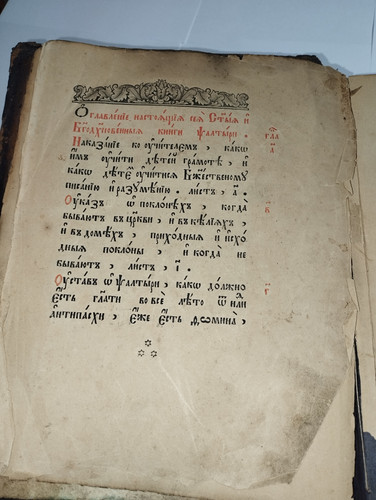 Ѻглавле́нїе настоѧ́щїѧ сеѧ̀ ст҃ы́ѧ и҆
Бг҃одꙋхнове́нныѧ кни́ги ѱалты́ри.
Наказа́нїе ко ᲂу҆чи́телемъ, ка́кѡ
и҆́мъ ᲂу҆чи́ти дѣте́й гра́мотѣ, и҆
ка́кѡ дѣ́темъ ᲂу҆чи́тисѧ Бж҃е́ственомꙋ
писа́нїю и҆ разꙋмѣ́нїю. ли́стъ, а҃.
Оу҆ка́зъ ѡ҆ покло́нѣхъ, когда̀
быва́ютъ въ цр҃кви, и҆ въ ке́лїѧхъ,
и҆ въ домѣ́хъ, прихо́дныѧ и҆ и҆схо́-
дныѧ покло́ны, и҆ когда̀ не
быва́ютъ, ли́стъ, і҃.
Оу҆ста́въ ѡ҆ ѱалты́ри, ка́кѡ до́лжно
є҆́сть гл҃а́ти во всѐ лѣ́то ѿ нл҃и
а҆нтипа́схи, є҆́же є҆́сть ѳѡминa,
гла
а҃
в҃
г҃